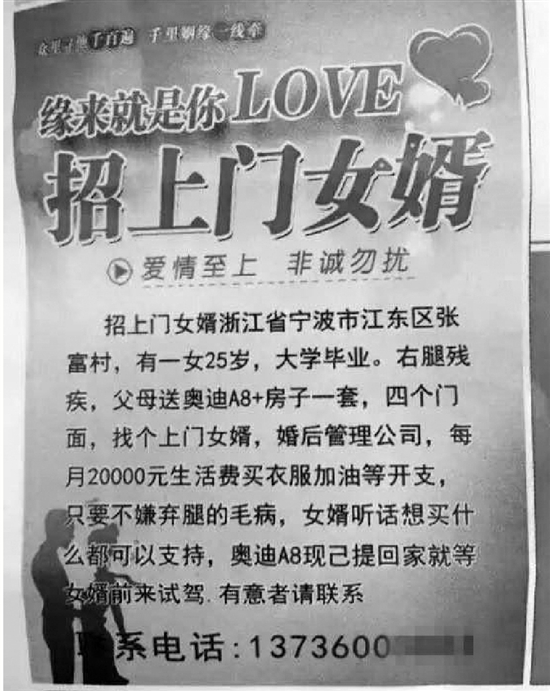 众里寻他千百遍 千里姻缘一线牵
缘来就是你LOVE
招上门女婿
爱情至上 非诚勿扰
招上门女婿浙江省宁波市江东区张
富村，有一女25岁，大学毕业。右腿残
疾，父母送奥迪A8+房子一套，四个门
面，找个上门女婿，婚后管理公司，每
月20000元生活费买衣服加油等开支，
只要不嫌弃腿的毛病，女婿听话想买什
么都可以支持，奥迪A8现己提回家就等
女婿前来试驾.有意者请联系
联系电话:1373600